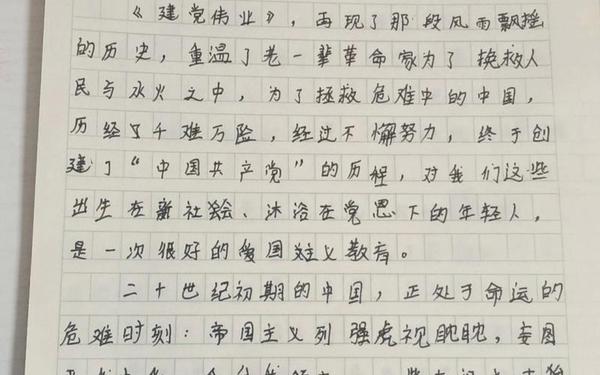 《建党伟业》，再现了那段风雨飘摇
的历史，重温了老一辈革命家为了挽救人
民与水火之中，为了拯救危难中的中国，
历经了千难万险，经过不懈努力，终于创
建了“中国共产党”的历程，对我们这些
出生在新社会、沐浴在党恩下的年轻人，
是一次很好的爱国主义教育。
二十世纪初期的中国，正处于命运的
危难时刻：帝国主义列强虎视眈眈，妄图